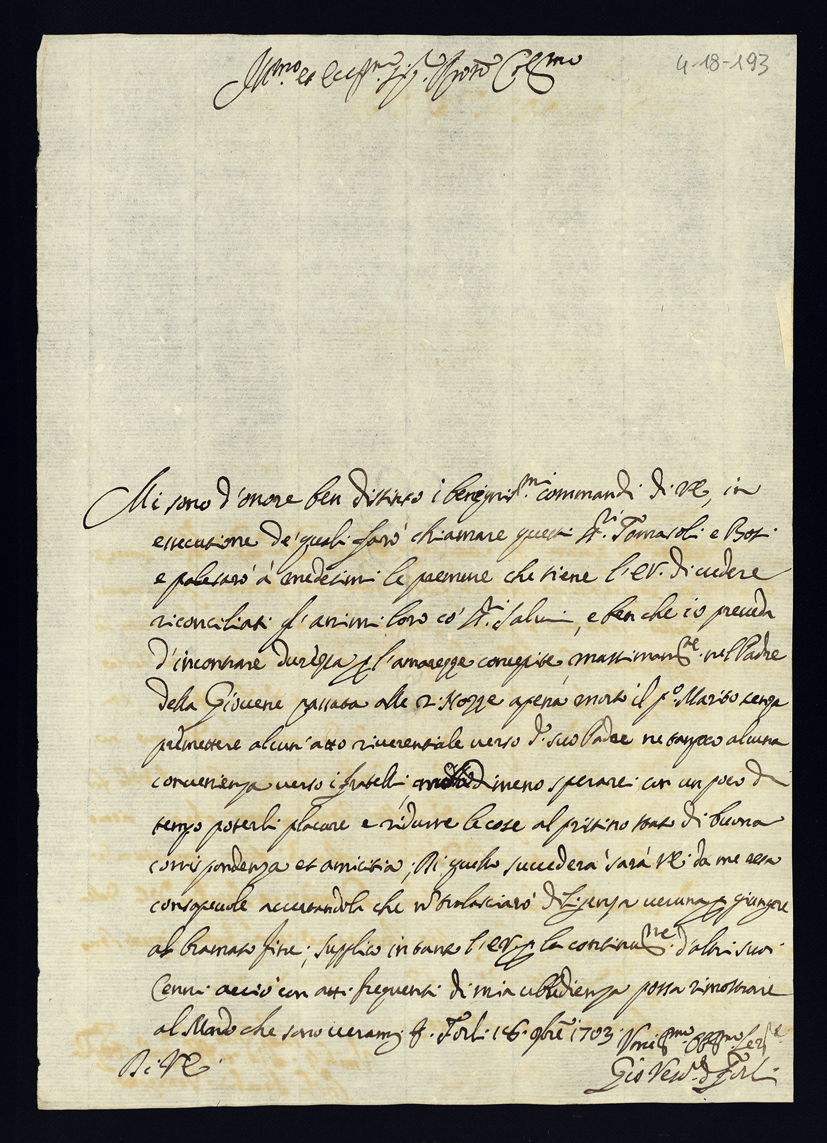 4-18-193
Ill.mo et Ecc.mo Sig.r Sig.r Pron Col.mo
Mi sono d'onore ben distinto i benigniss.mi commandi di VE, in
essecutione de' quali farò chiamare questi SS.ri Tomasoli e Bosi
e palesarò à medesimi le premure che tiene l'EV. di vedere
riconciliati gl'animi loro co' SS.ri Salvi, e ben che io preveda
d'incontrare durezza p l'amarezze concepite massimam.te nel Padre
della Giovene passata alle 2. Nozze apena morto il p.o Marito senza
premettere alcun'atto riverentiale verso d. suo Padre ne tanpoco alcuna
convenienza verso i fratelli, dimeno sperarei con un poco di
tempo poterli placare e ridurre le cose al pristino stato di buona
corrispondenza et amicitia; Di quello succederà sarà VE da me resa
consapevole accertandola che nõ tralasciarò diligenza veruna p giungere
al bramato fine; supplico in tanto l'EV p la continu.ne d'altri suoi
Cenni acciò con atti frequenti di mia ubbidienza possa rimostrare
al Mondo che sono veram.te Forlì 16 9bre 1703
Di VE
Gio Vesc.o di Forlì